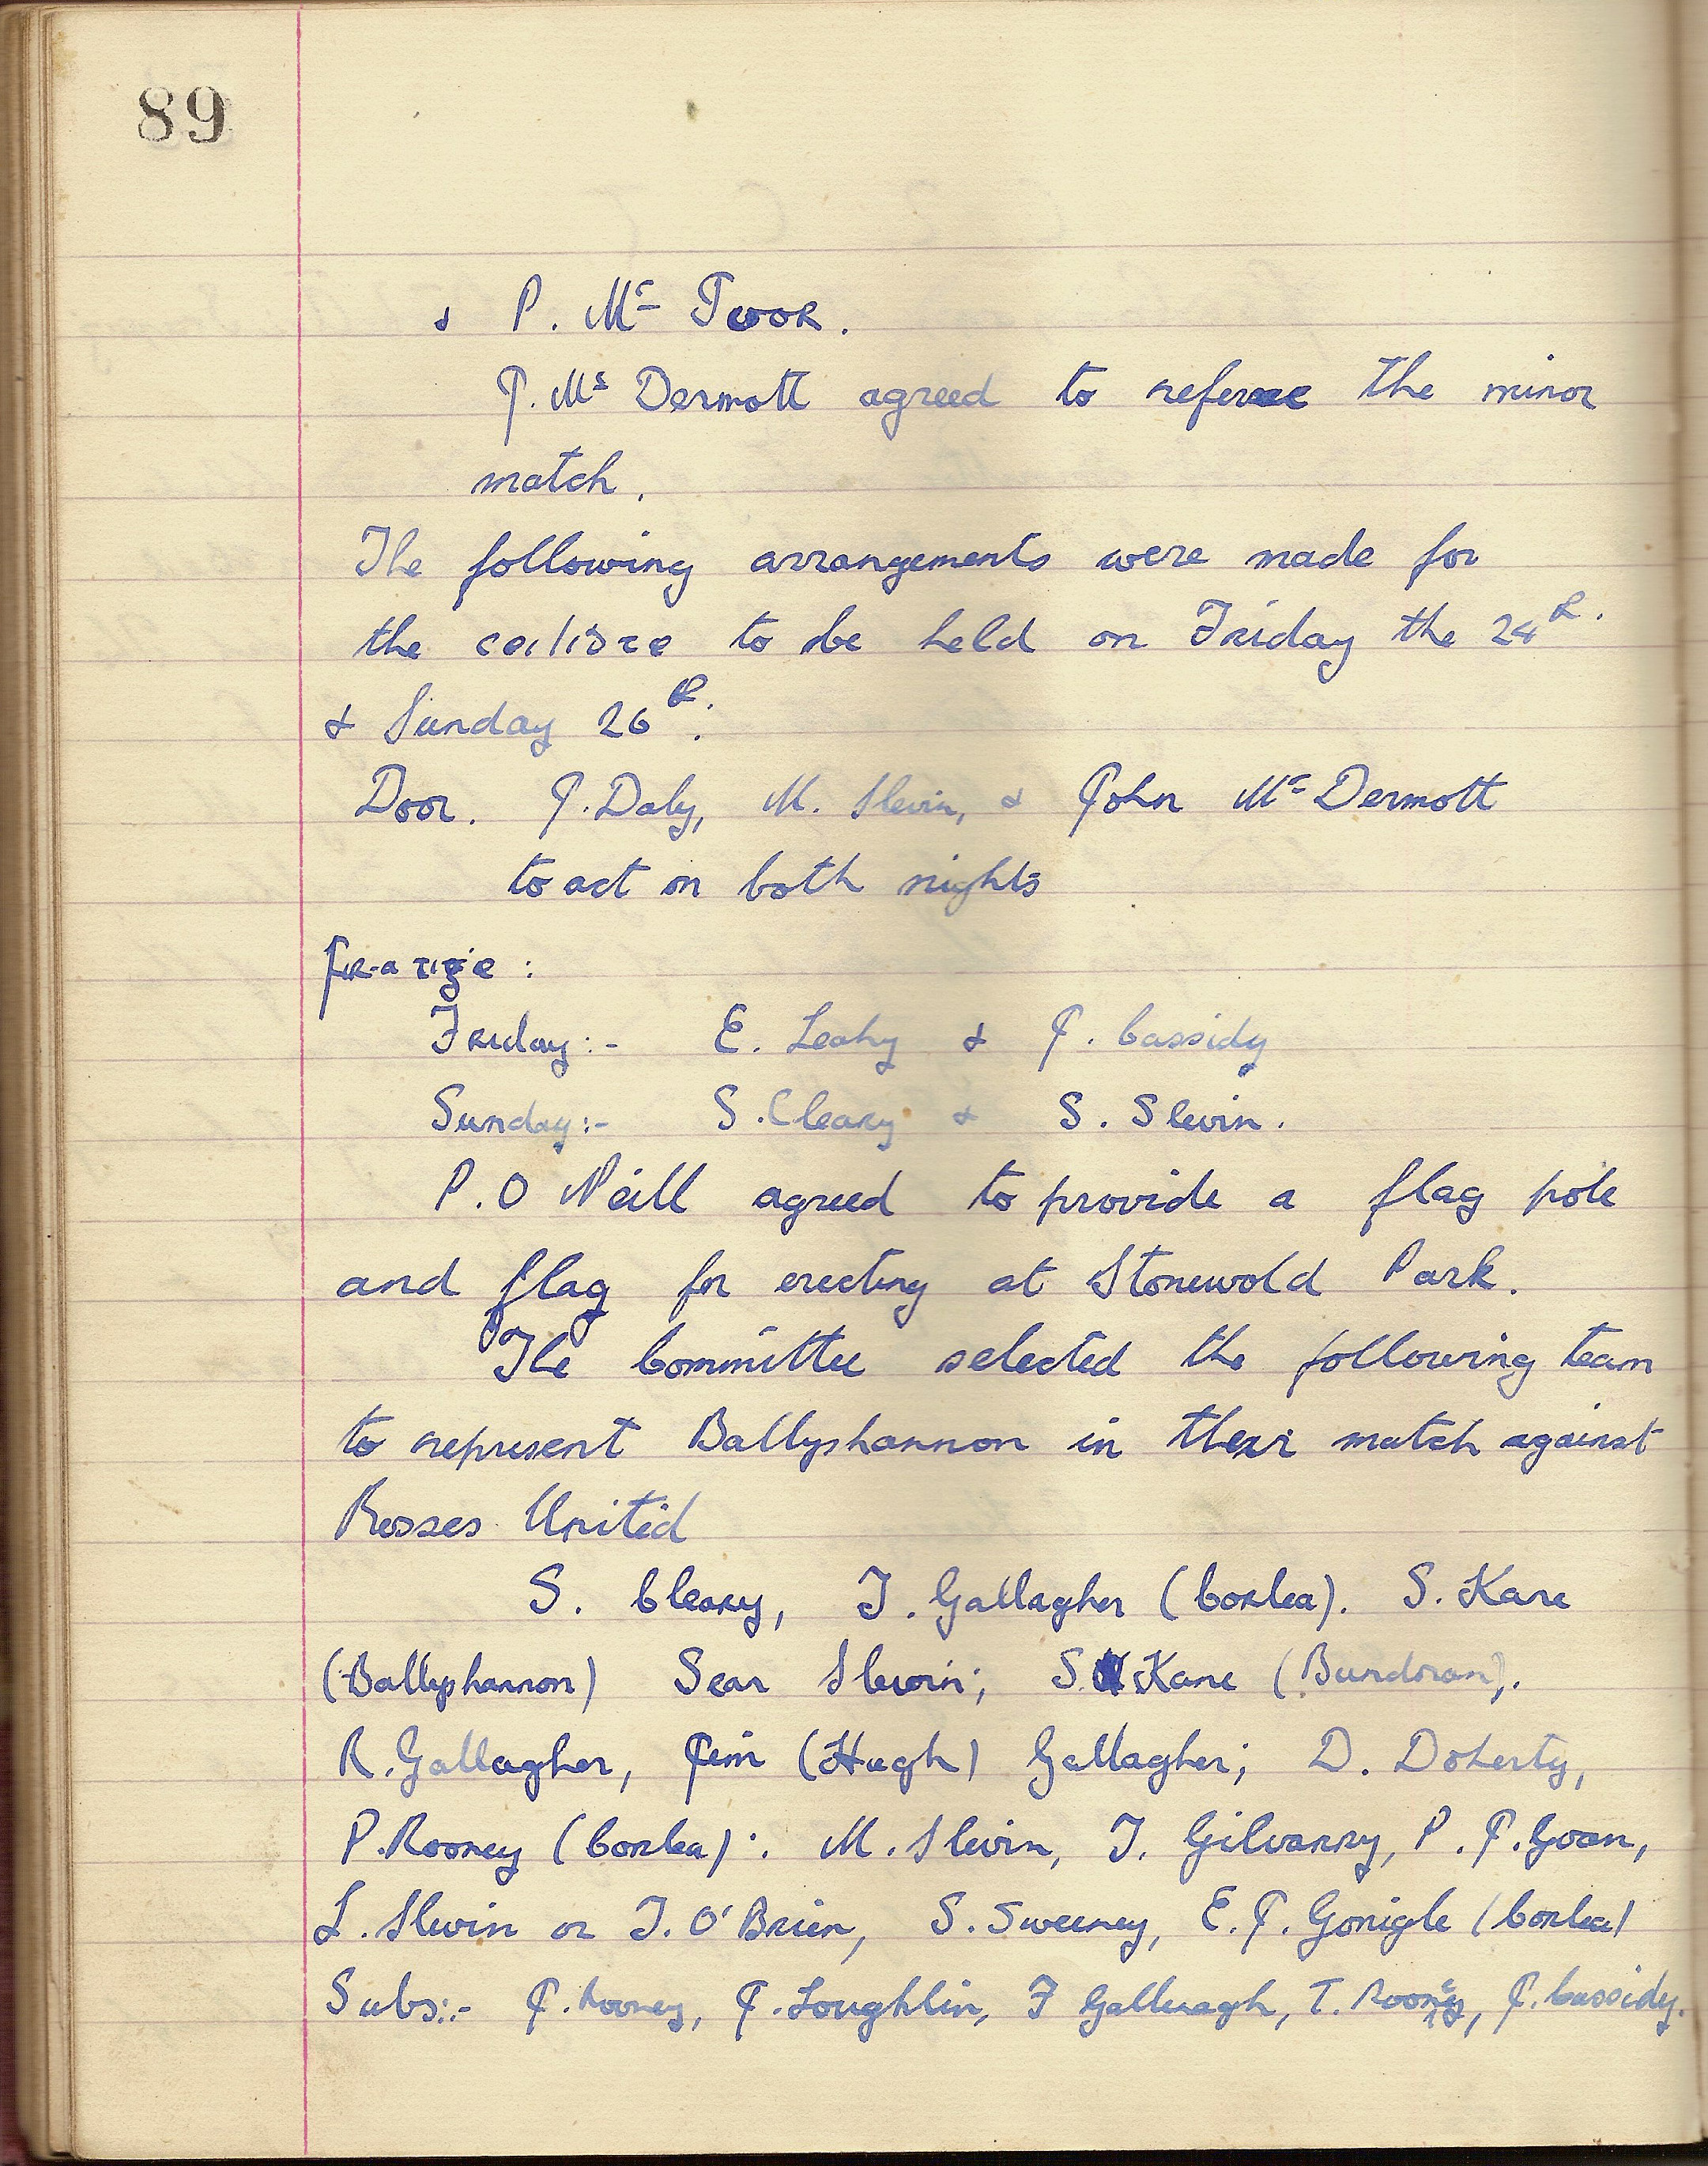 89
& P. Mc Ivor.
J. Mc Dermott agreed to referee the minor
match.
The following arrangements were made for
the ceilidhe to be held on Friday the 24th.
& Sunday 26th.
Door. J. Daly, M. Slevin, & John Mc Dermott
to act on both nights
Friday:- E. Leahy & J. Cassidy
Sunday:- S. Cleary & S. Slevin.
P. O Neill agreed to provide a flag pole
and flag for erecting at Stonewold Park.
The Committee selected the following team
to represent Ballyshannon in their match against
Rosses United
S. Cleary, T. Gallagher (Corlea). S. Kane
(Ballyshannon) Sean Slevin; S. Kane (Bundoran).
R. Gallagher, Jim (Hugh) Gallagher; D. Doherty,
P. Rooney (Corlea): M. Slevin, T. Gilvarry, P. J. Goan,
L. Slevin or T. O'Brien, S. Sweeney, E. J. Gonigle (Corlea)
Subs:- J. Rooney, J. Loughlin, F Galluagh, T. Rooney, J. Cassidy.